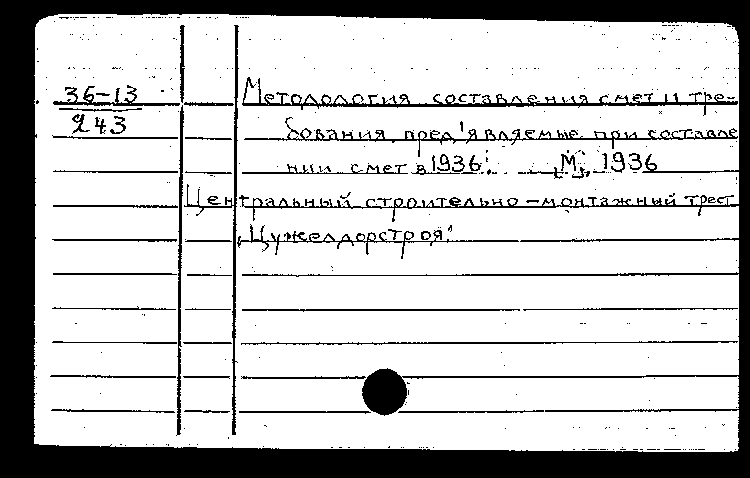 36-13
243
Методология составления смет и тре-
бования, пред'являемые при составле
нии смет в 1936г. [М], 1936
Центральный строительно-монтажный трест
"Цужелдорстроя".